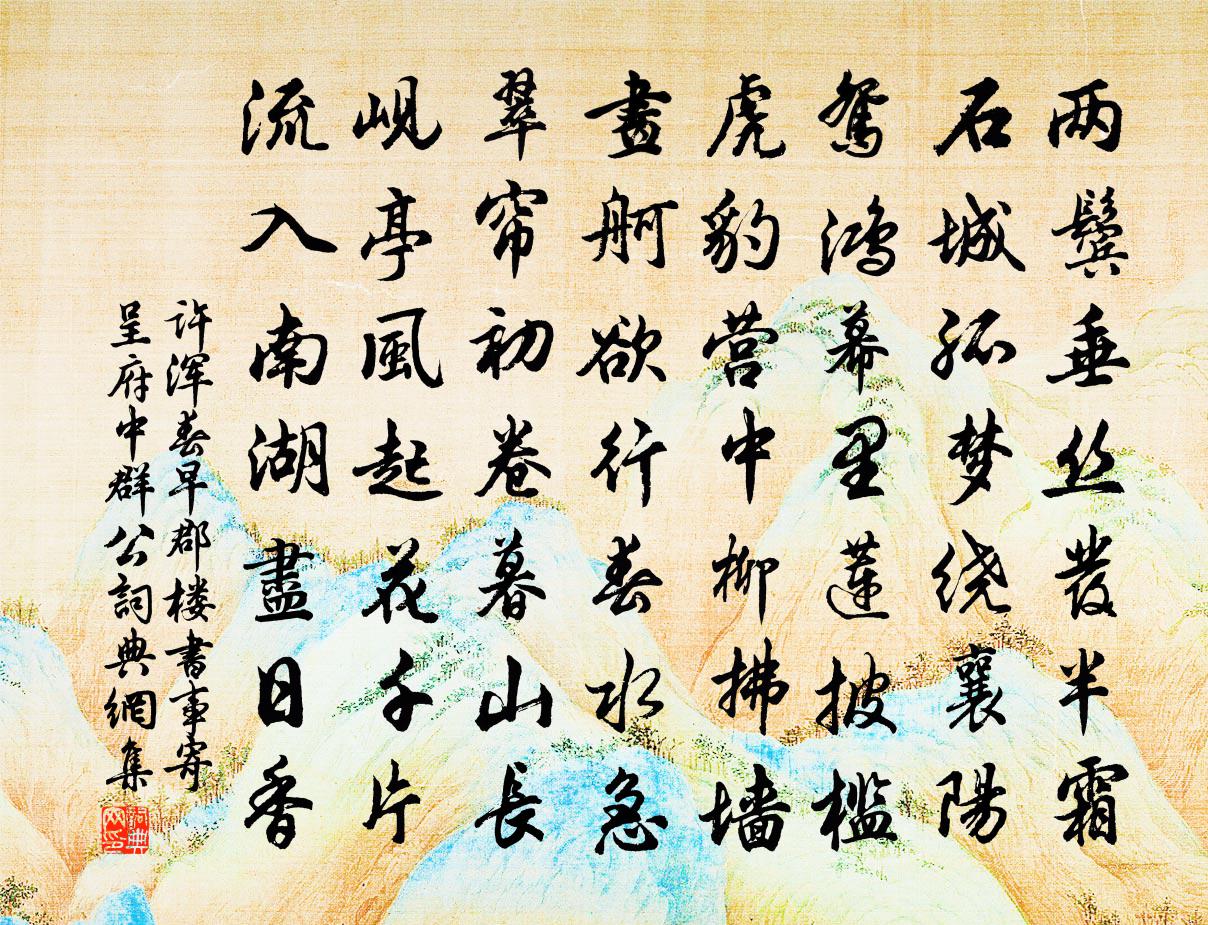 两鬓垂丝发半霜
石城孤梦绕襄陽
鸳鸿幕里莲披槛
虎豹营中柳拂墙
畫舸欲行春水急
翠帘初卷暮山長
岘亭風起花千片
流入南湖盡日香
许浑春早郡楼書事寄
呈府中群公詞典網集